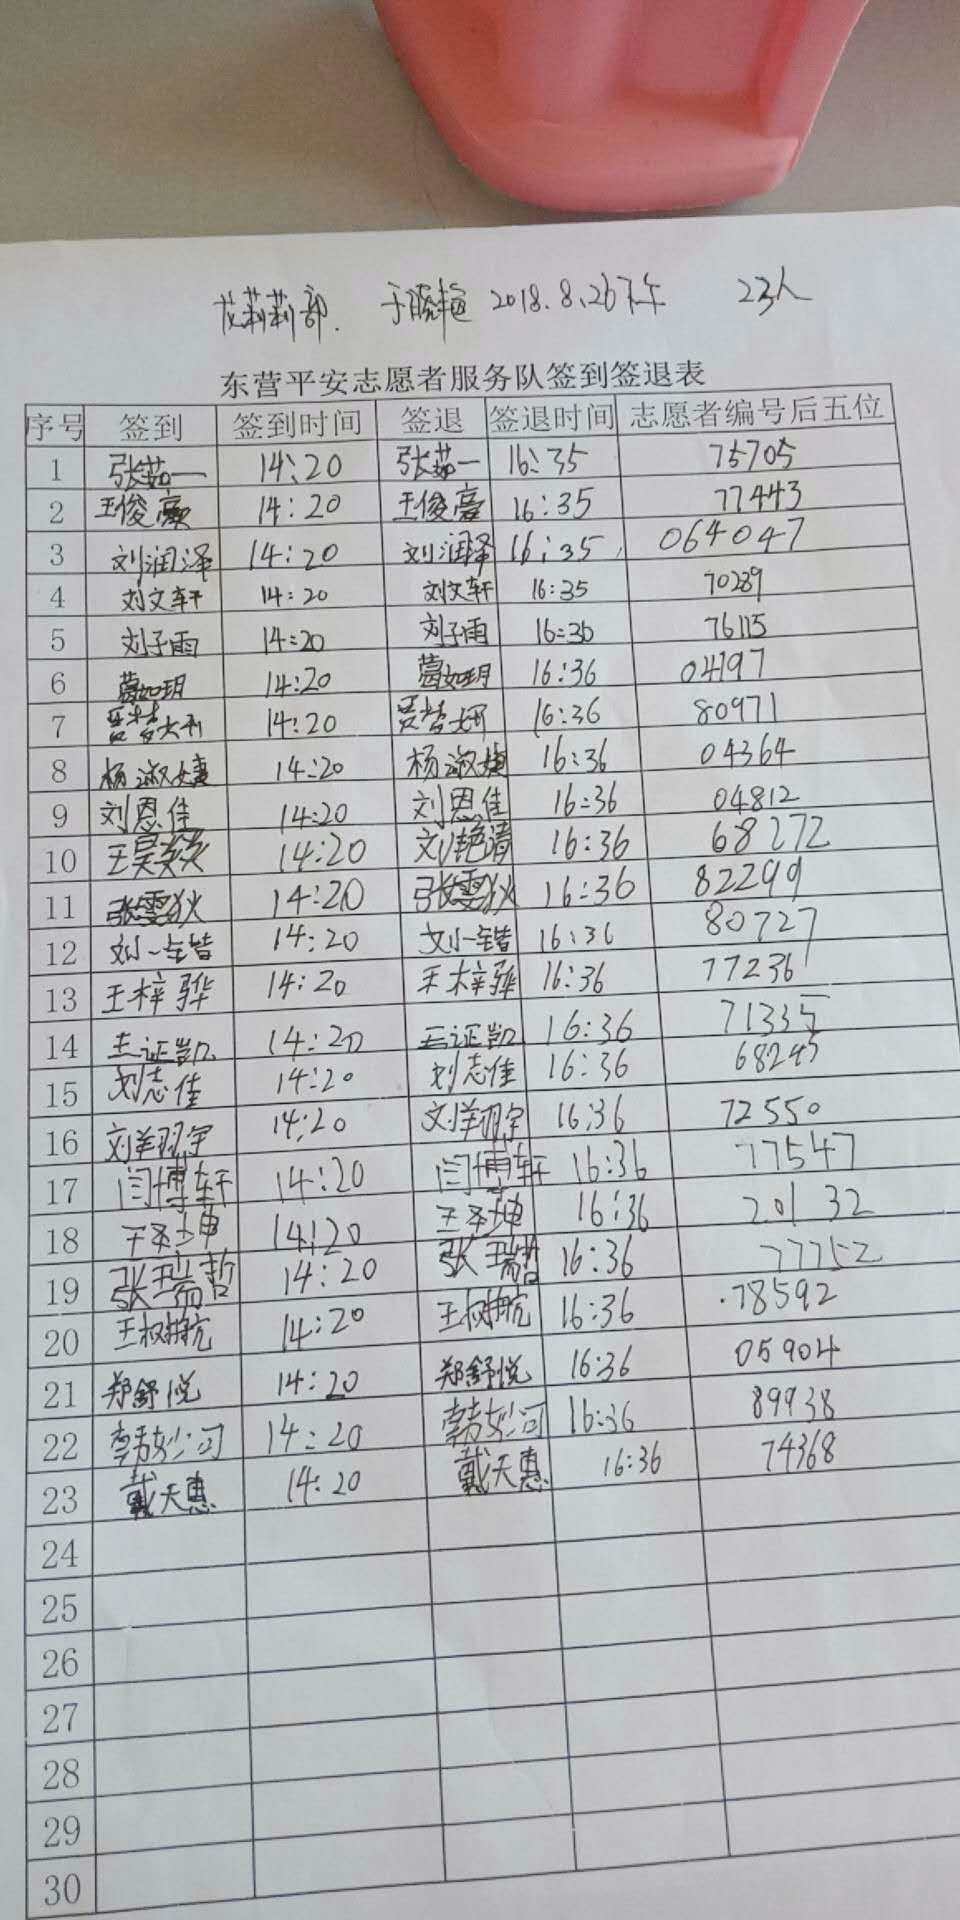 莉莉部. 于晓艳 2018.8.26下午 23人
东营平安志愿者服务队签到签退表
序号 签到 签到时间 签退 签退时间 志愿者编号后五位
1 张茹一 14:20 张茹一 16:35 75705
2 王俊豪 14:20 王俊豪 16:35 77443
3 刘润泽 14:20 刘润泽 16:35 064047
4 刘文轩 14:20 刘文轩 16:35 70289
5 刘子雨 14:20 刘子雨 16:36 76115
6 葛如玥 14:20 葛如玥 16:36 04197
7 14:20 16:36 80971
8 杨淑婕 14:20 杨淑婕 16:36 04364
9 刘恩佳 14:20 刘恩佳 16:36 04812
10 王昊 14:20 刘艳清 16:36 68272
11 张雯狄 14:20 张雯狄 16:36 82299
12 刘一锴 14:20 刘一锴 16:36 80727
13 王梓骅 14:20 王梓骅 16:36 77236
14 王证凯 14:20 王证凯 16:36 71335
15 刘志佳 14:20 刘志佳 16:36 68245
16 刘羊羽宇 14:20 刘羊羽宇 16:36 72550
17 闫博轩 14:20 闫博轩 16:36 77547
18 14:20 16:36 20132
19 张瑞哲 14:20 张瑞哲 16:36 77752
20 王权航 14:20 王权航 16:36 78592
21 郑舒悦 14:20 郑舒悦 16:36 05904
22 韩妙可 14:20 韩妙可 16:36 89938
23 戴天惠 14:20 戴天惠 16:36 74368
24
25
26
27
28
29
30